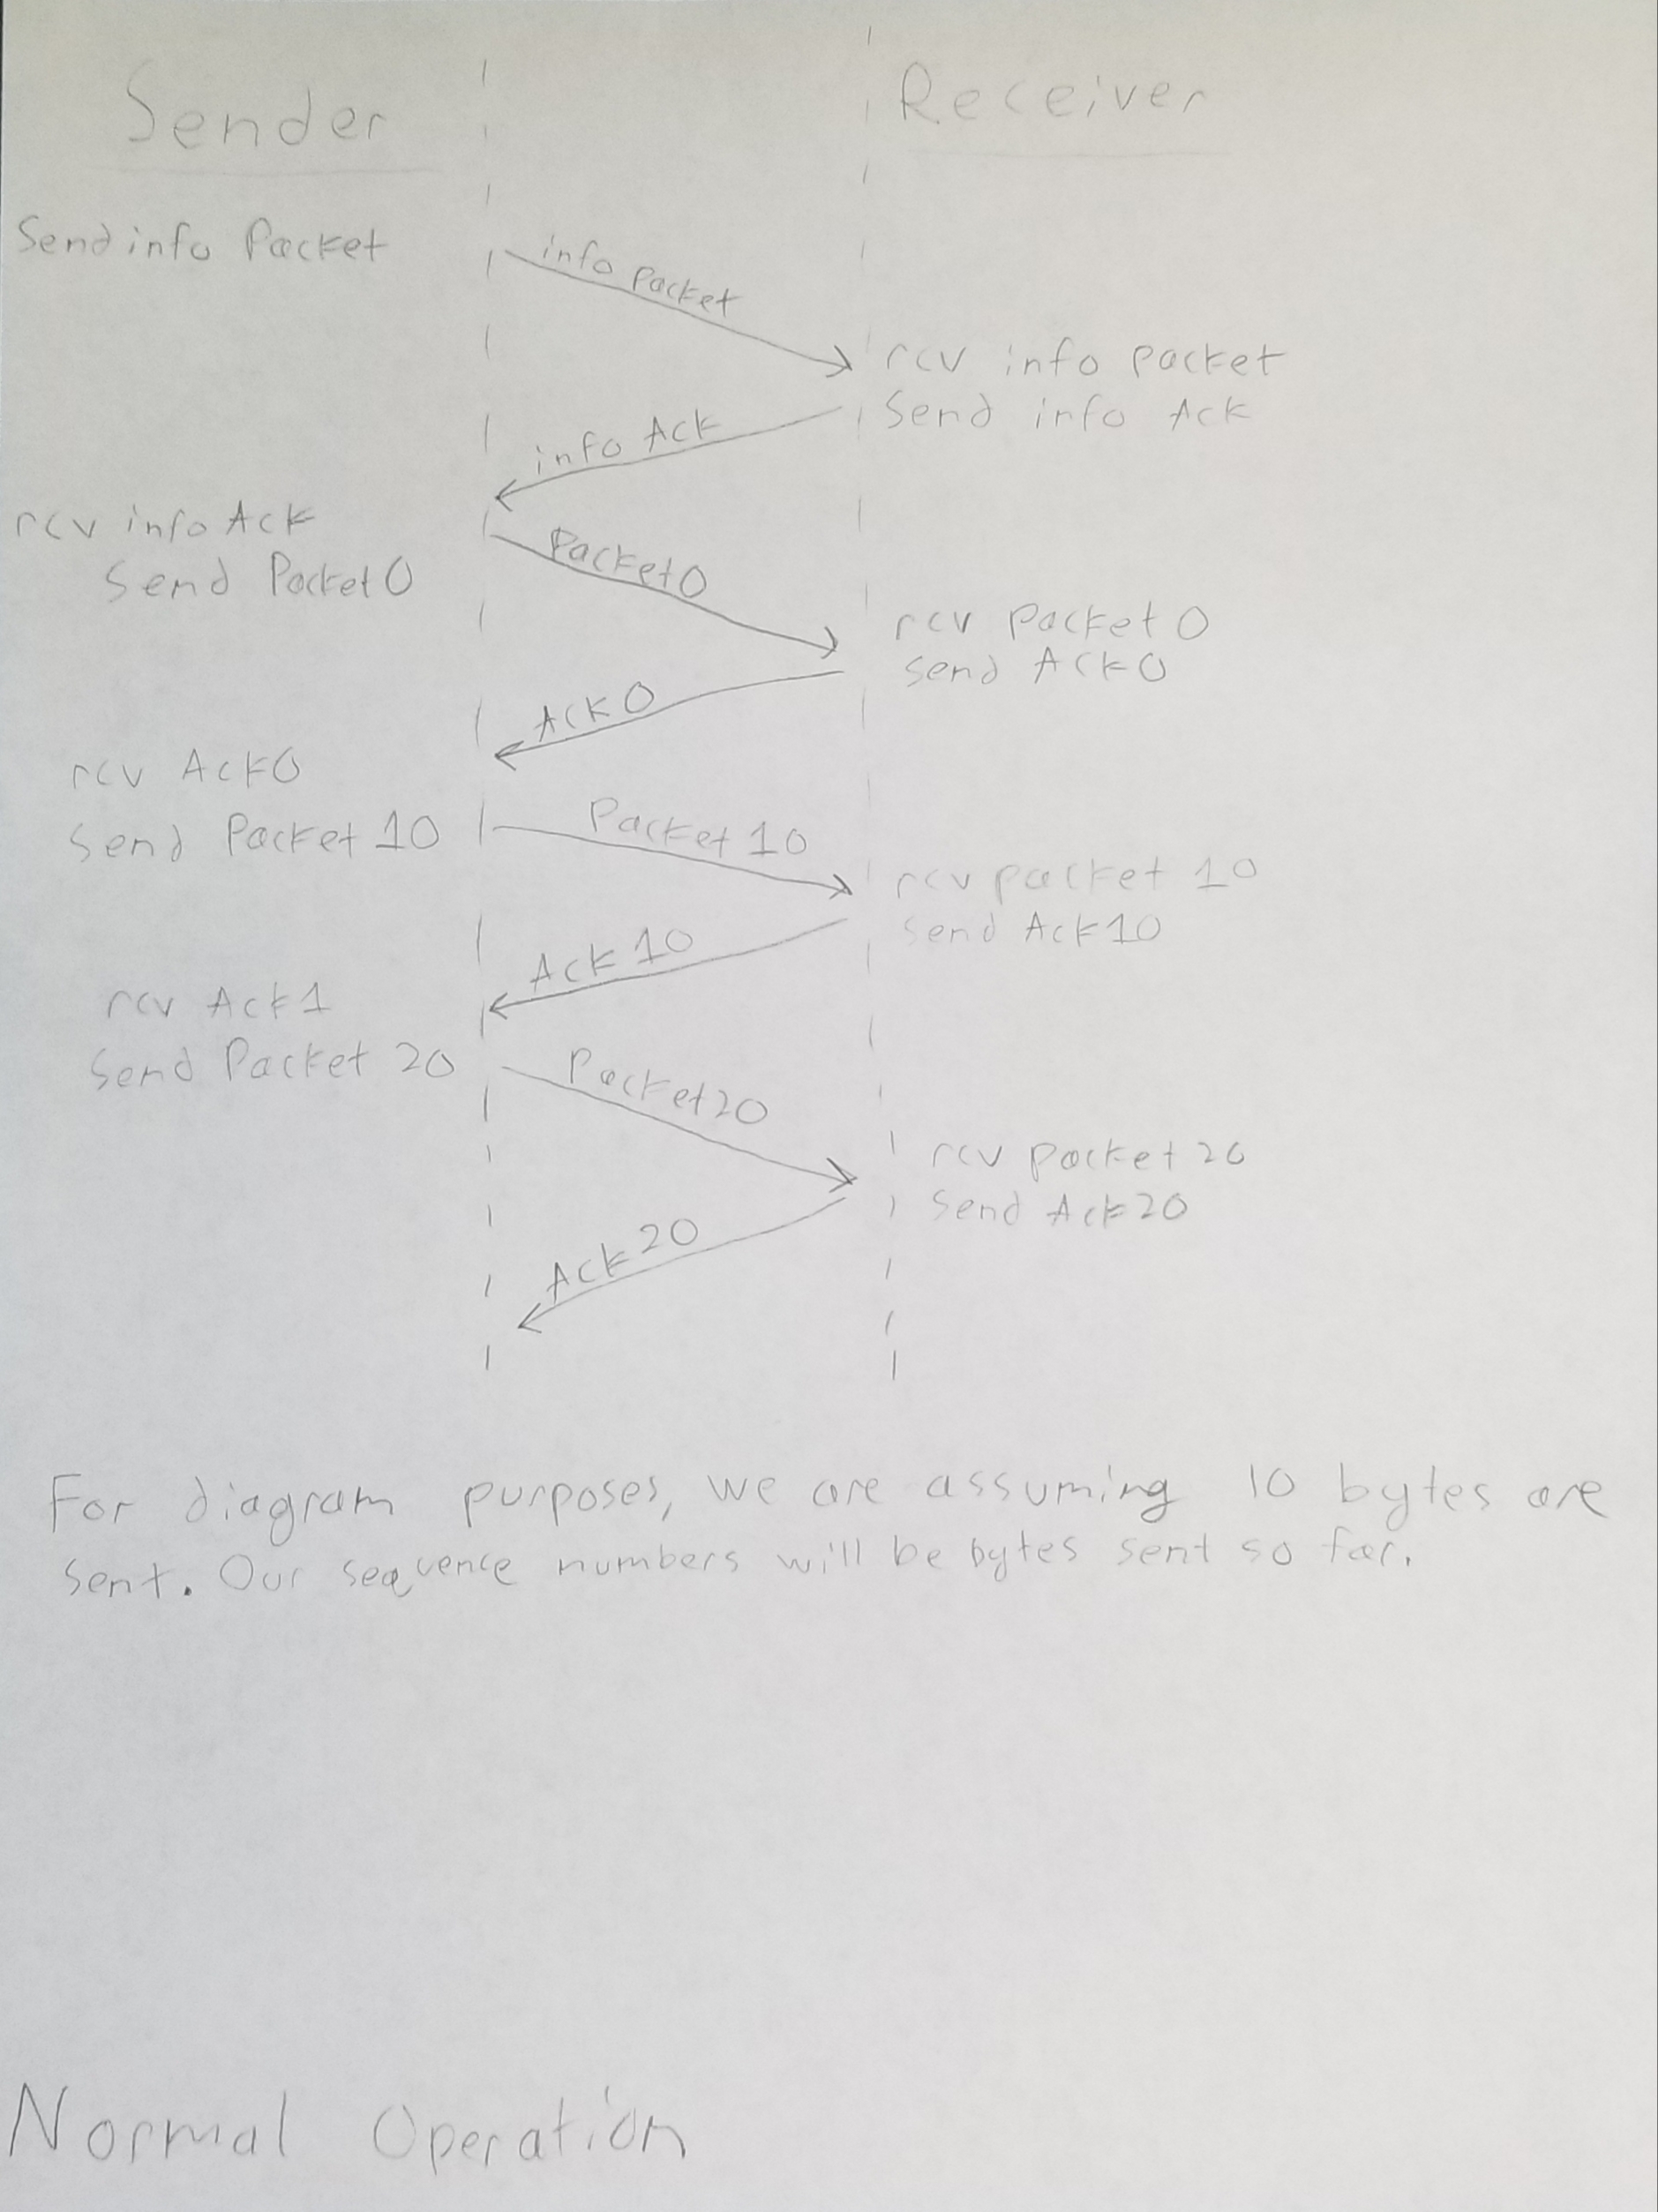 Sender
Receiver
Send info Packet
info packet
rcv info packet
Send info Ack
info Ack
rcv info Ack
Send Packet 0
Packet 0
rcv packet 0
send Ack 0
Ack 0
rcv Ack 0
Send Packet 10
Packet 10
rcv packet 10
send Ack 10
Ack 10
rcv Ack 1
Send Packet 20
Packet 20
rcv packet 20
Send Ack 20
Ack 20
For diagram purposes, we are assuming 10 bytes are
sent. Our sequence numbers will be bytes sent so far.
Normal Operation